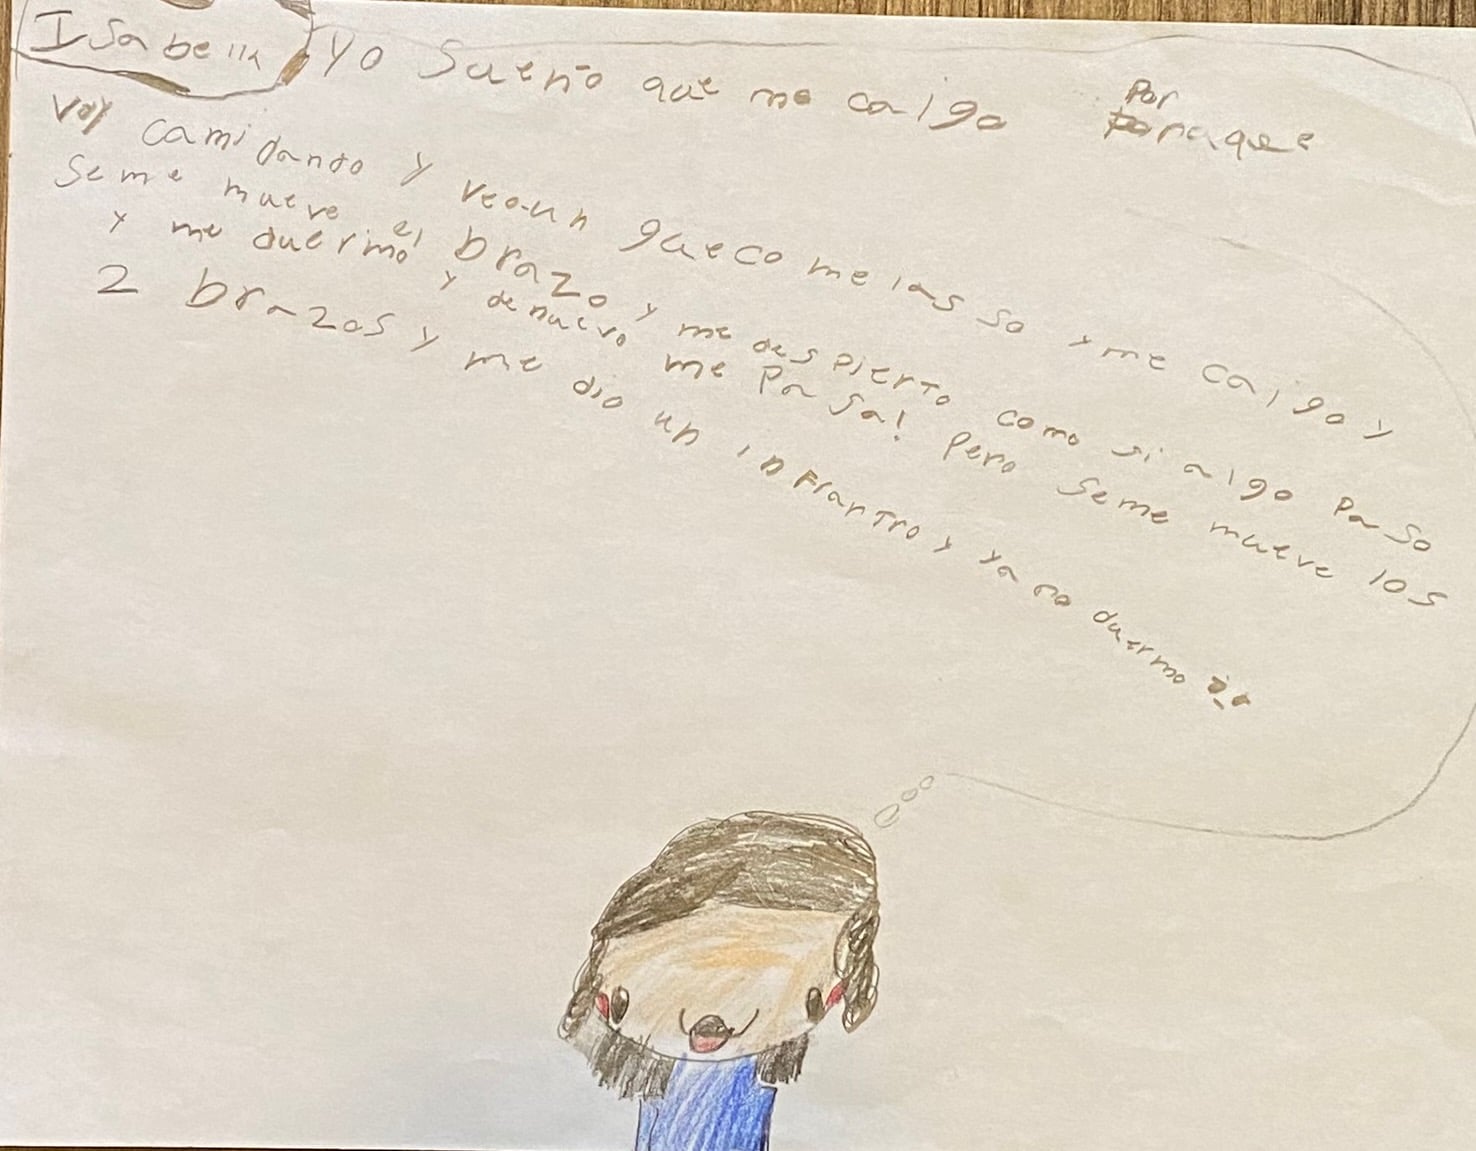 Isabella
Yo sueño que me caigo Por
raque
voy camidando y veo un gueco me lasso y me caigo y
seme mueve el brazo y me despierto como si algo Paso
y me duermo y de nuevo me Pasa! Pero seme mueve los
2 brazos y me dio un infrartro y ya no duermo